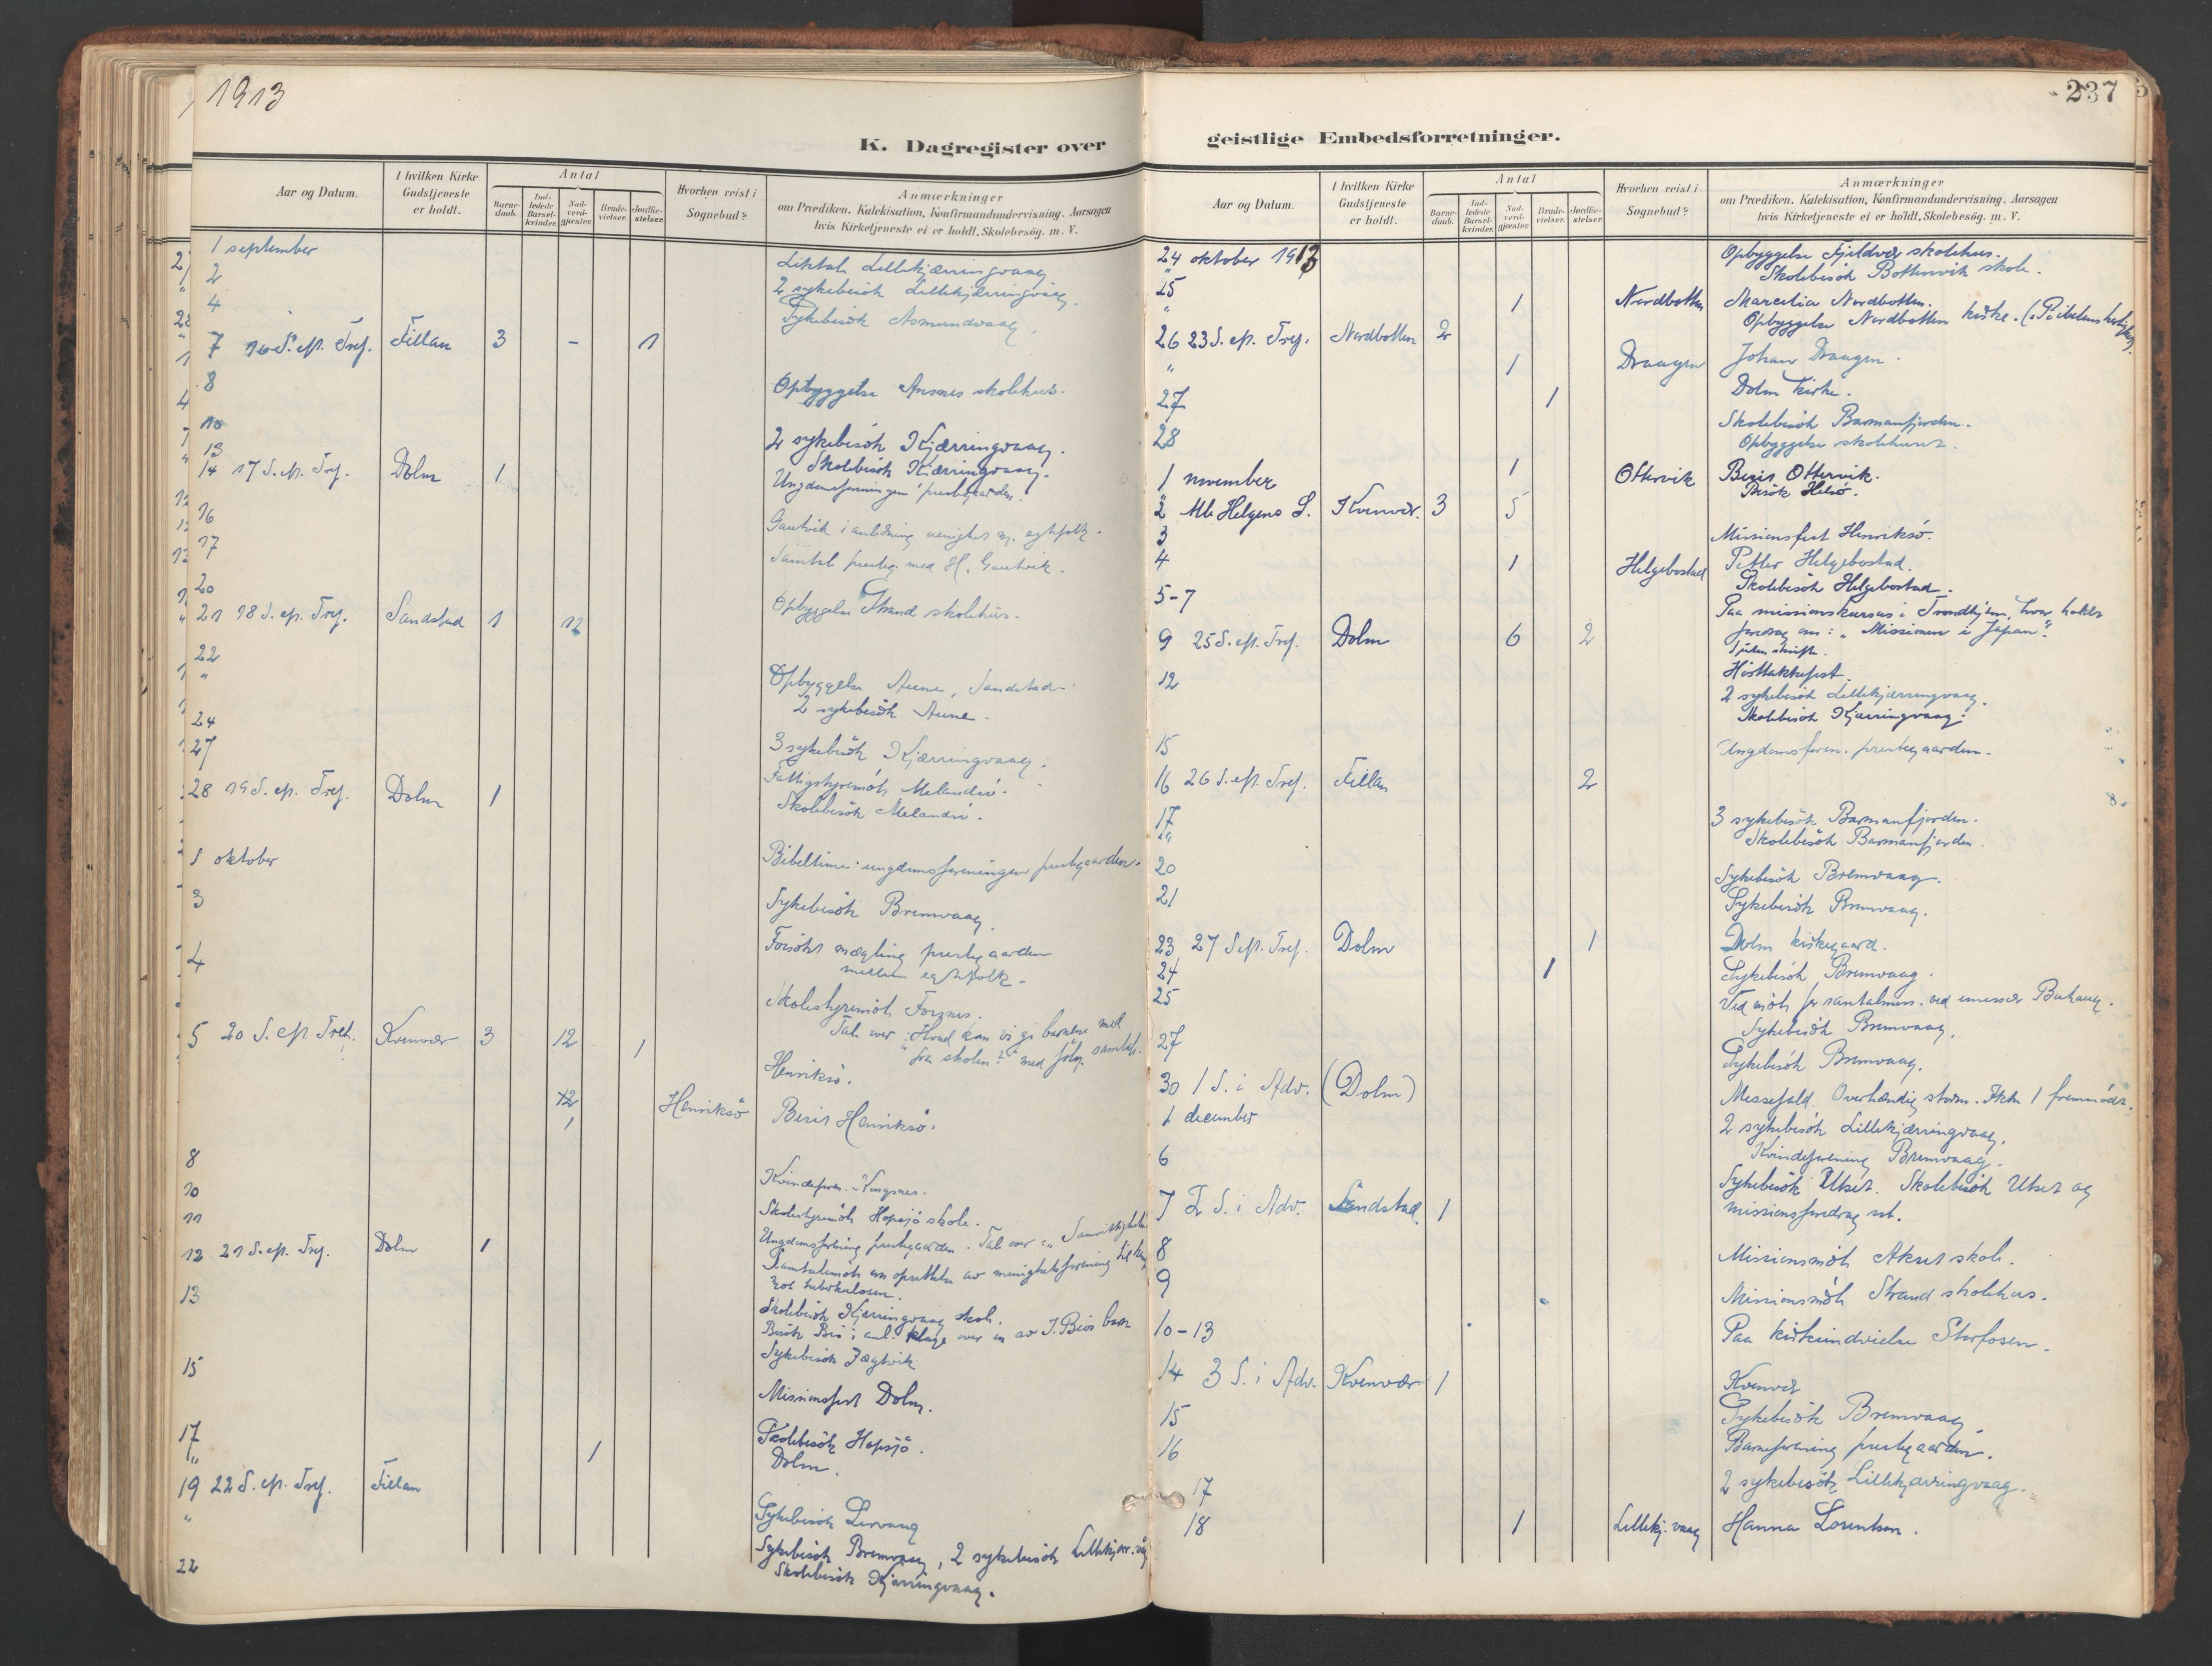 1913
K. Dagregister over
Aar og Datum.
I hvilken Kirke Gudstjeneste er holdt.
Antal
Barnedaab.
Indledede Barselkvinder.
Nadverdgjæster.
Brudevielser.
Jordfæstelser.
Hvorhen reist i Sognebud?
Anmærkninger
om Prædiken, Katekisation, Konfirmandundervisning, Aarsagen
hvis Kirketjeneste ei er holdt, Skolebesøg. m. V.
1 september
2 Lillekjærringvaag
4 2 sykebesök Lillekjærringvaag.
Sykebesök Asmundvaag.
7 16 S. ep. Tref. Fillan 3 - 1
8 Opbyggelse Ansnes skolehus.
10 2 sykebesök Kjærringvaag.
13 Skolebesök Kjærringvaag.
14 17 S. ep. Tref. Dolm 1 Ungdomsforeningen prestegaarden.
16 Gautvik i anledning egtefolk.
17 Samtale presteg. med H. Gautvik.
20 Opbyggelse Strand skolehus.
21 18 S. ep. Tref. Sandstad 1 12
22 Opbyggelse Aune, Sandstad.
" 2 sykebesök Aune.
24 3 sykebesök Kjærringvaag.
27 Fattigstyremöte Melandsö.
Skolebesök Melandsö.
28 19 S. ep. Tref. Dolm 1
1 oktober Bibeltime i ungdomsforeningen prestegaarden.
3 Sykebesök Bremvaag.
4 Forsökt mægling prestegaarden
mellem egtefolk.
Skolestyremöte Forsnes.
Tale over: Hvad kan vi gi barnene med
fra skolen? med fölg. samtale.
5 20 S. ep. Tref. Kvenvær 3 12 1
Henriksö.
12
1 Henriksö Berit Henriksö.
8 Kvindeforen. Kongsnes.
10 Skolestyremöte Hopsjö skole.
11 Ungdomsforening prestegaarden. Tale over: "Samvittigheten
12 21 S. ep. Tref. Dolm 1 Samtalemöte om oprettelse av menighetsforening til kamp
mot tuberkulosen.
13 Skolebesök Kjærringvaag skole.
Besök i anl. klage over en av barn
15 Sykebesök Jægtvik
Missionsfest Dolm.
17 Skolebesök Hopsjö.
" 1 Dolm.
19 22 S. ep. Tref. Fillan
" Sykebesök Lervaag
22 Sykebesök Bremvaag, 2 sykebesök Lillekjær.våg
Skolebesök Kjærringvaag.
237
geistlige Embedsforretninger.
Aar og Datum.
I hvilken Kirke Gudstjeneste er holdt.
Antal
Barnedaab.
Indledede Barselkvinder.
Nadverdgjæster.
Brudevielser.
Jordfæstelser.
Hvorhen reist i Sognebud?
Anmærkninger
om Prædiken, Katekisation, Konfirmandundervisning, Aarsagen
hvis Kirketjeneste ei er holdt, Skolebesøg. m. V.
24 oktober 1913 Opbyggelse Fjeldvær skolehus.
" Skolebesök Bottenvik skole.
25 1 Nordbotten Marcelia Nordbotten.
" Opbyggelse Nordbotten kirke.
26 23 S. ep. Tref. Nordbotten 2
" 1 Draagen Johan Draagen.
27 1 Dolm kirke.
28 Skolebesök Barmanfjorden.
Opbyggelse skolehuset.
1 november 1 Ottervik Berit Ottervik.
Besök Helsö.
2 Alle Helgens S. Kvenvær. 3 5
3 Missionsfest Henriksö.
4 1 Helgebostad Petter Helgebostad.
Skolebesök Helgebostad.
5-7 Paa missionskursus i Trondhjem, hvor holdt
foredrag om: "Missionen i Japan".
9 25 S. ep. Tref. Dolm 6 2
Hösttakkefest.
12 2 sykebesök Lillekjærringvaag.
Skolebesök Kjærringvaag.
15 Ungdomsforen. prestegaarden.
16 26 S. ep. Tref. Fillan 2
17 3 sykebesök Barmanfjorden.
" Skolebesök Barmanfjorden.
20 Sykebesök Bremvaag.
21 Sykebesök Bremvaag.
23 27 S. ep. Tref. Dolm 1 Dolm kirkegaard.
24 1 Sykebesök Bremvaag.
25 Ved möte for santalmiss. ved emissær
Sykebesök Bremvaag.
27 Sykebesök Bremvaag.
30 1 S. i Adv. (Dolm) Messefald. Overhændig storm. 1 fremmödt.
1 december 2 sykebesök Lillekjærringvaag.
6 Kvindeforening Bremvaag.
Sykebesök Utset. Skolebesök Utset og
7 2 S. i Adv. Sandstad. 1 missionsforedrag sst.
8 Missionsmöte Akset skole.
9 Missionsmöte Strand skolehus.
10-13 Paa kirkeindvielse Storfosen.
14 3 S. i Adv. Kvenvær 1 Kvenvær
15 Sykebesök Bremvaag
16 Barneforening prestegaarden.
17 2 sykebesök Lillekjærringvaag.
18 1 Lillekj. vaag Hanna Lorentsen.